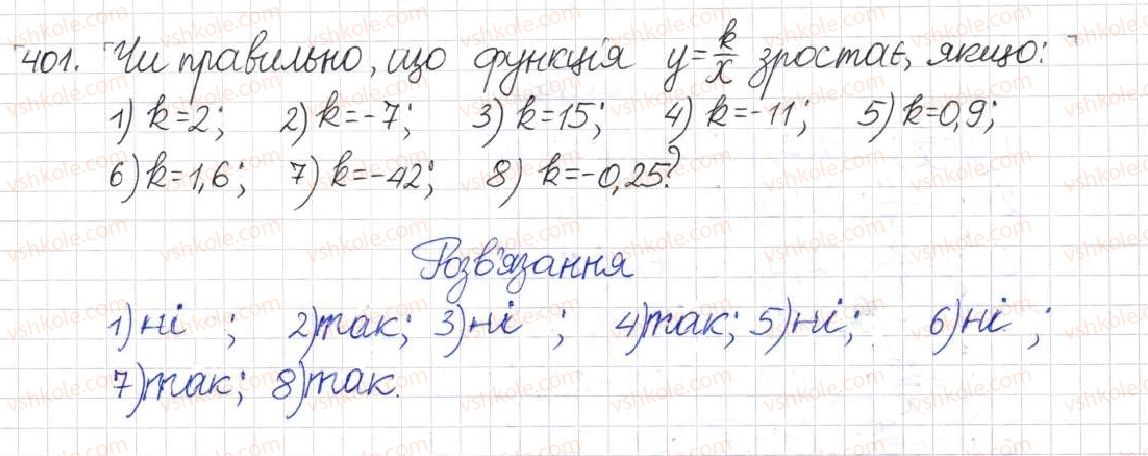 401. Чи правильно, що функція y=k/x зростає, якщо:
1) k=2; 2) k=-7; 3) k=15; 4) k=-11; 5) k=0,9;
6) k=1,6; 7) k=-42; 8) k=-0,25?
Розв'язання
1) ні ; 2) так; 3) ні ; 4) так; 5) ні; 6) ні ;
7) так; 8) так.